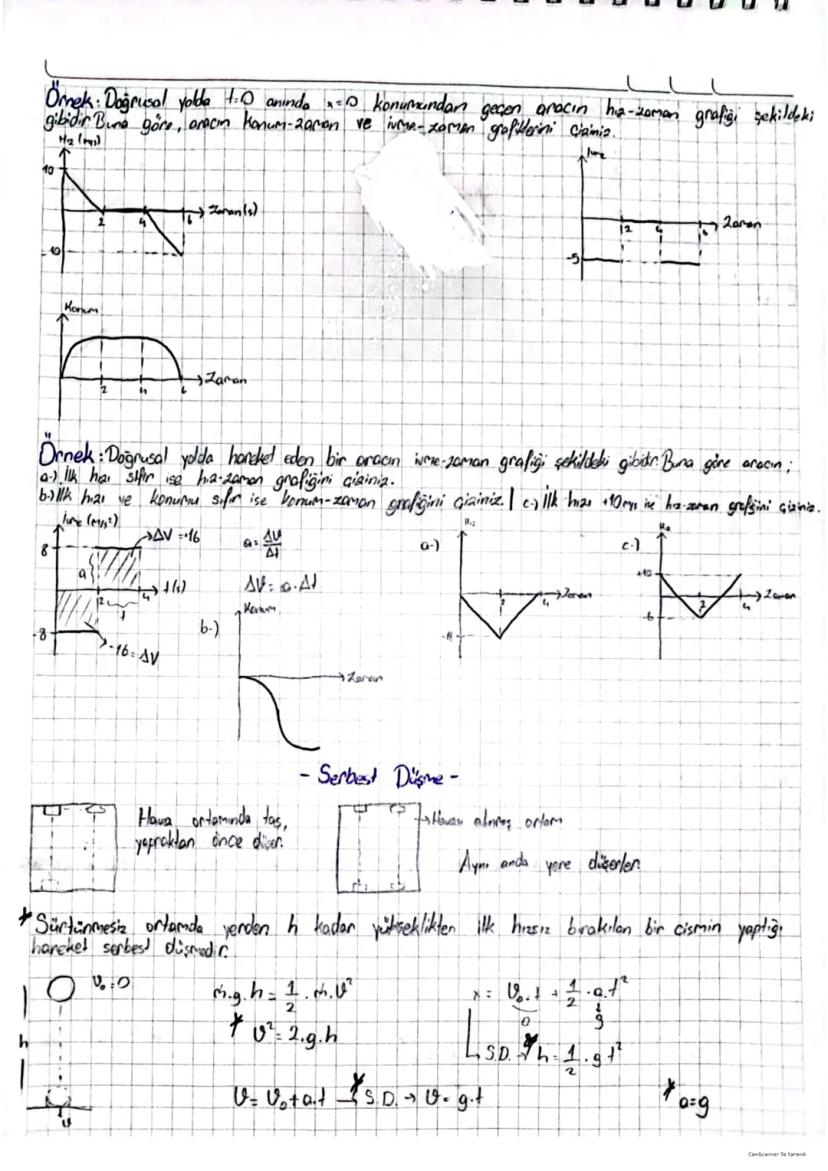 Örnek: Doğrusal yolda t=0 anında x=0 konumundan geçen aracın hız-zaman grafiği şekildeki
gibidir. Buna göre, aracın konum-zaman ve ivme-zaman grafiklerini çiziniz.
Hız (m/s)
10
Zaman(s)
2 4 6
-10
İvme
Zaman
2 4 6
-5
Konum
Zaman
2 4 6
Örnek: Doğrusal yolda hareket eden bir aracın ivme-zaman grafiği şekildeki gibidir. Buna göre aracın;
a-) İlk hızı sıfır ise hız-zaman grafiğini çiziniz.
b-) İlk hızı ve konumu sıfır ise konum-zaman grafiğini çiziniz. | c-) İlk hızı +10 m/s ise hız-zaman grafiğini çiziniz.
İvme (m/s²)
8
ΔV=+16
a
t(s)
2 4
t
-8
-16=ΔV
a=ΔV/Δt
ΔV=a.Δt
b-)
Konum
Zaman
a-)
Hız
Zaman
2 4
c-)
Hız
+10
Zaman
2 4
-6
- Serbest Düşme -
Hava ortamında taş,
yapraktan önce düşer.
Havası alınmış ortam
Aynı anda yere düşerler.
* Sürtünmesiz ortamda yerden h kadar yükseklikten ilk hızsız bırakılan bir cismin yaptığı
hareket serbest düşmedir.
V₀=0
h
v
m.g.h = 1/2 . m.V²
* V²=2.g.h
x = V₀.t + 1/2 . a.t²
0 g
S.D. → * h = 1/2 . g t²
V = V₀+a.t → * S.D. → V = g.t
* a=g
CamScanner ile tarandı